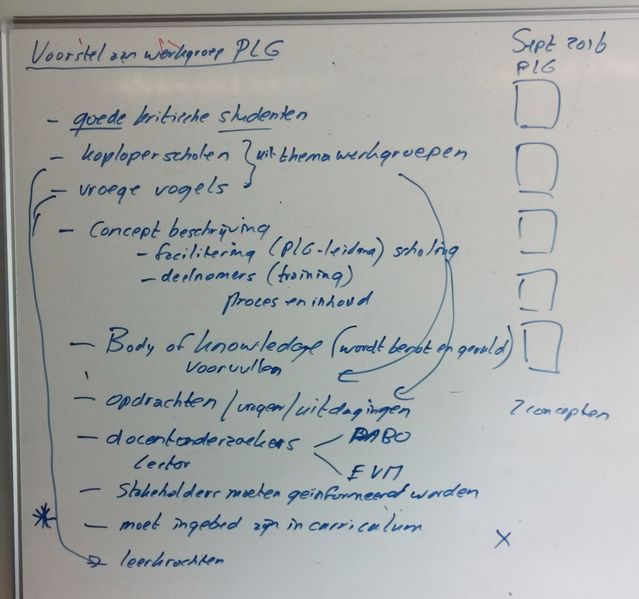 Voorstel aan werkgroep PLG
Sept 2016
PLG
- goede kritische studenten
- koploper scholen } uit themawerkgroepen
- vroege vogels
- Concept beschrijving
- facilitering (PLG-leiding) scholing
- deelnemers (training)
proces en inhoud
- Body of knowledge (wordt benut en gevuld)
voorvullen
- opdrachten / vragen / uitdagingen
2 concepten
- docentonderzoekers
BABO
lector
EVM
- Stakeholders moeten geïnformeerd worden
* - moet ingebed zijn in curriculum
X
leerkrachten